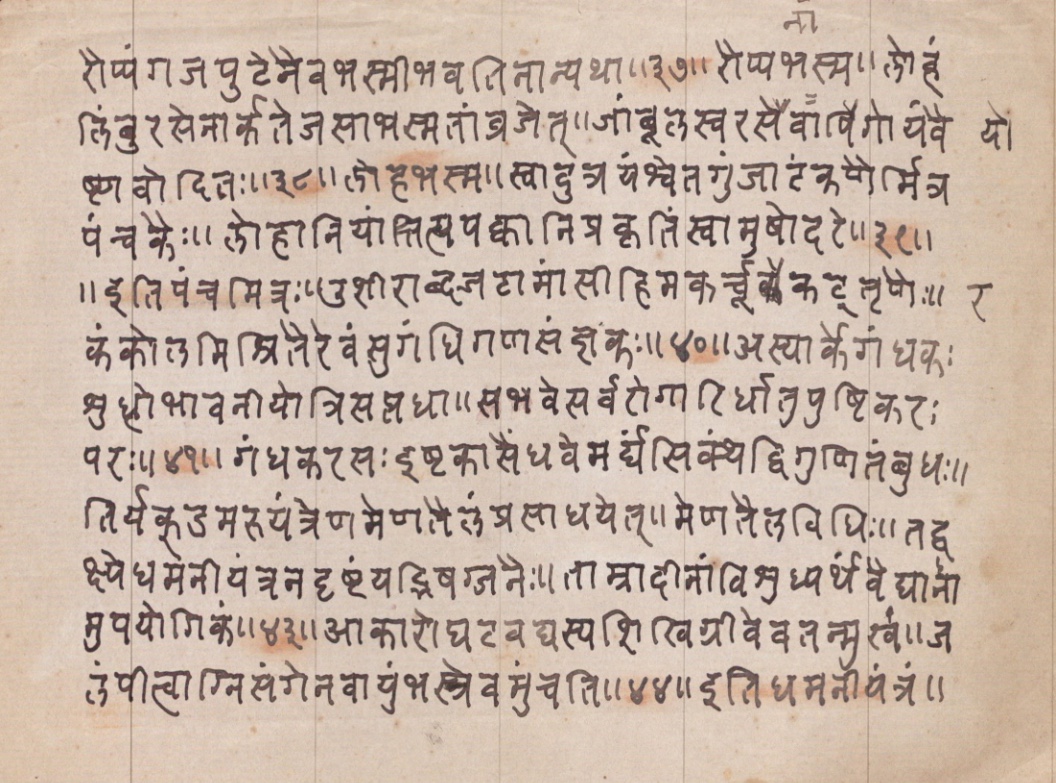 नां
रौप्यं गजपुटेनैव भस्मीभवति नान्यथा॥३७॥ रौप्यभस्म॥ लोहं
लिंबुरसेनार्कतेजसा भस्मतां व्रजेत्॥ जांबूलस्वरसैर्वापि गोयंवै यो
ष्णवोदितः॥३८॥ लोहभस्म॥ स्वादुत्रयं श्वेतगुंजाटंकणैर्मित्र
पंचकैः॥ लोहानि यांति त्यपक्वानि प्रकृतिं स्वामुषोदटे॥३९॥
॥इति पंचमित्रः॥ उशीराब्दजटामांसीहिमकर्चूकैकटूतृणैः॥ र
कंकोलमिश्रितैरेवं सुगंधिगणसंज्ञकः॥४०॥ अस्यार्के गंधकः
शुद्धो भावनीयो त्रिसप्तधा॥ स भवेसर्वरोगारिर्धातुपुष्टिकरः
परः॥४१॥ गंधकरसः इष्टकासैंधवे मर्द्य सिक्थं द्विगुणितं बुधः॥
तिर्यक्डमरूयंत्रेण मेणतैलं प्रसाधयेत्॥ मेणतैलविधिः॥ तद्व
क्ष्ये धमनीयंत्र न दृष्टं यद्भिषग्जनैः॥ ताम्रादीनां विशुध्यर्थं वैद्यानां
मुपयोगिकं॥४३॥ आकारो घटवद्यस्य शिखिग्रीवेवतन्मुखं॥ ज
लं पीत्वाग्निसंगेन वायुं भस्त्रेव मुंचति॥४४॥ इति धमनीयंत्रं॥